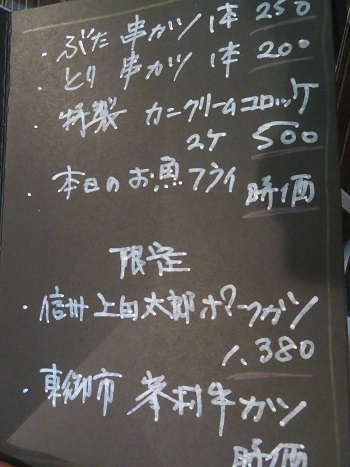 ・ぶた 串カツ 1本 250
・とり 串カツ 1本 200
・特製 カニクリームコロッケ
2ケ 500
・本日のお魚フライ 時価
限定
・信州上田太郎ポークカツ
1,380
・東御市 峯村牛カツ
時価